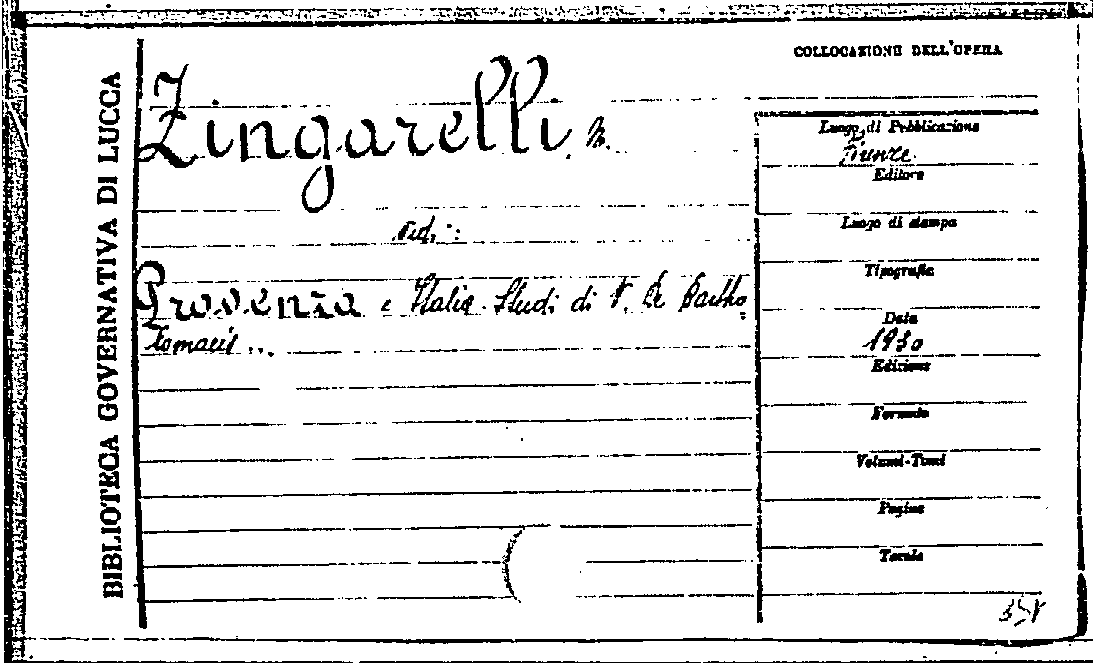 BIBLIOTECA GOVERNATIVA DI LUCCA
COLLOCAZIONE DELL'OPERA
Zingarelli, N.
Ved.:
Provenza e Italia. Studi di V. De Bartho
lomaeis ...
Luogo di Pubblicazione
Firenze
Editore
Luogo di stampa
Tipografia
Data
1930
Edizione
Formato
Volumi-Tomi
Pagine
Tavole